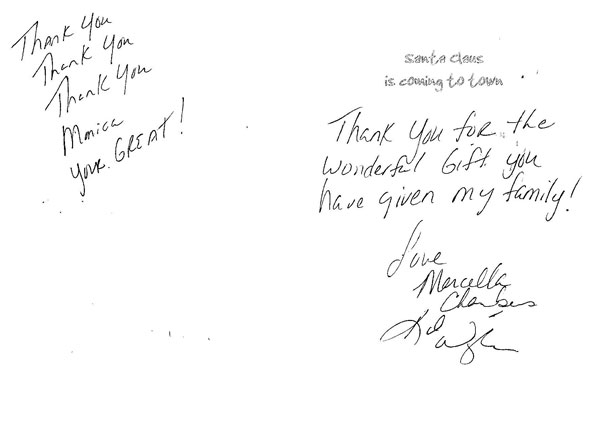 Thank You
Thank You
Thank You
Monica
your GREAT!
santa claus
is coming to town
Thank You for the
wonderful Gift you
have given my family!
Love
Marcella
Chambers